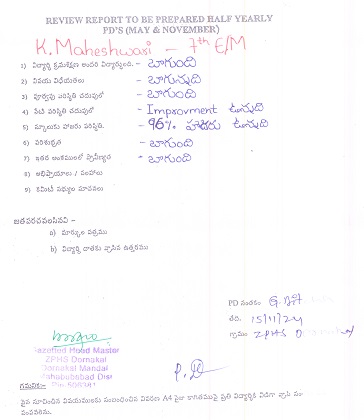 REVIEW REPORT TO BE PREPARED HALF YEARLY
PD'S (MAY & NOVEMBER)
K. Maheshwari - 7th E/M
1) విద్యార్థి క్రమశిక్షణ అందరి విద్యార్థులతో. - బాగుంది
2) వినయ విధేయతలు - బాగున్నది
3) పూర్వపు పరిస్థితి చదువులో - బాగుంది
4) నేటి పరిస్థితి చదువులో - Improvment ఉన్నది
5) స్కూలుకు హాజరు పరిస్థితి. - 96% హాజరు ఉన్నది
6) పరిశుభ్రత - బాగుంది
7) ఇతర అంశములలో ప్రావీణ్యత - బాగుంది
8) అభిప్రాయాలు / సలహాలు
9) కమిటీ సభ్యుల సూచనలు
జతపరచవలసినవి -
a) మార్కుల పత్రము
b) విద్యార్థి దాతకు వ్రాసిన ఉత్తరము
PD సంతకం
తేది. 15/11/24
గ్రామం ZPHS
Gazetted Head Master
ZPHS Dornakal
Dornakal Mandal
Mahabubabad Dist
Pin 506381
గమనిక:-
పైన సూచించిన విషయములకు సంబంధించిన వివరణ A4 సైజు కాగితముపై ప్రతి విద్యార్థికి విడిగా వ్రాసి పం
పవలెను.